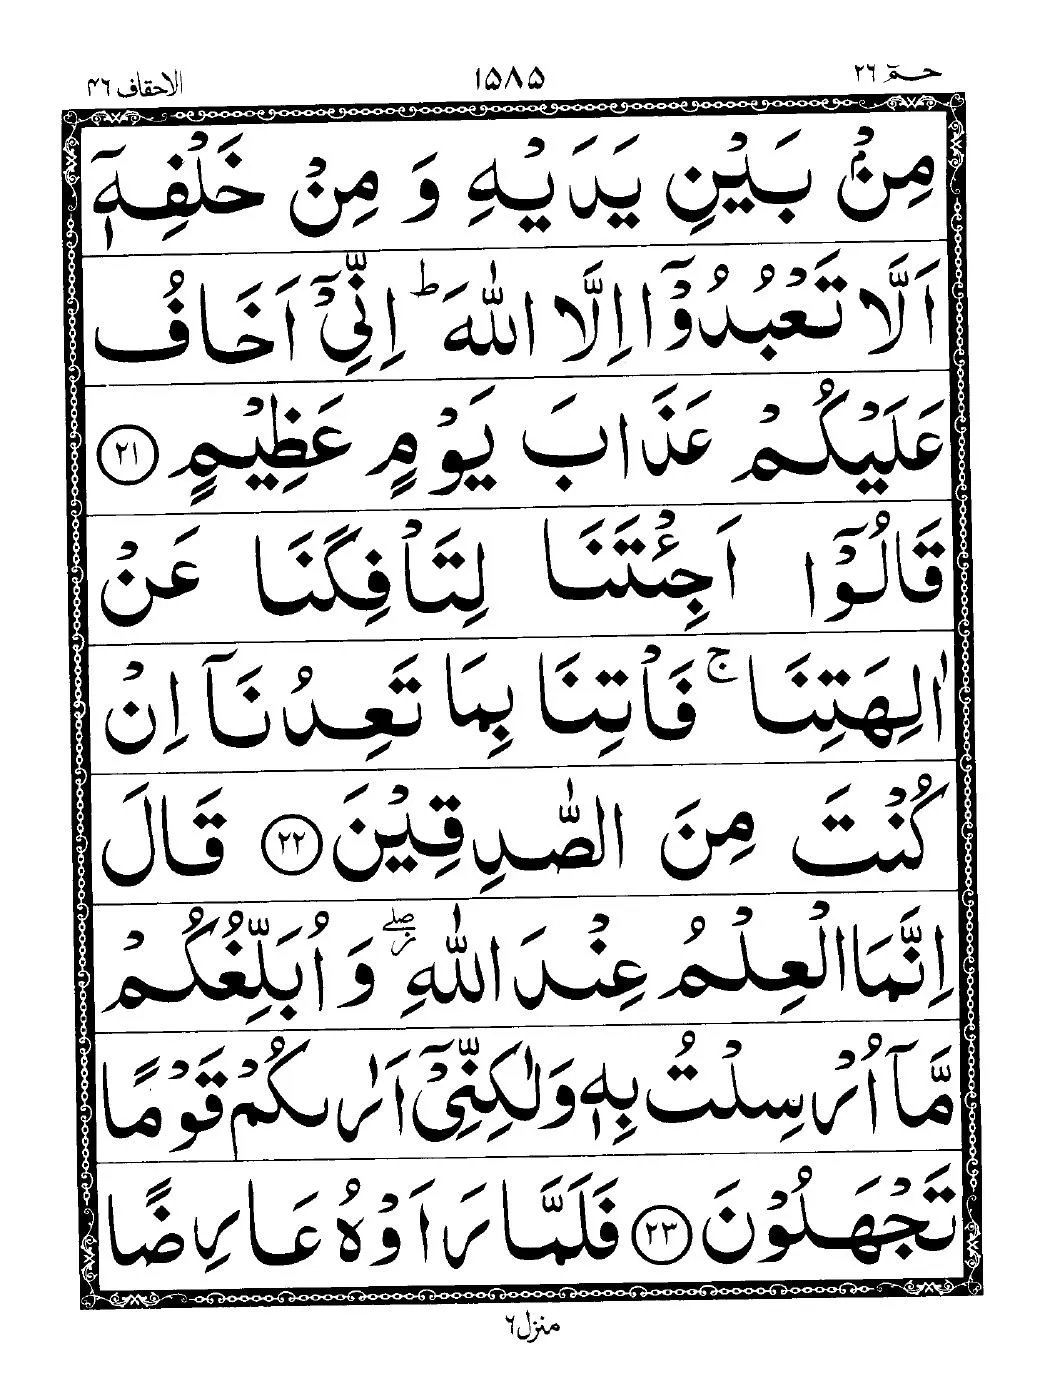 حٰمٓ ٢٦ ١٥٨٥ الاحقاف ٤٦
مِنْۢ بَيْنِ يَدَيْهِ وَ مِنْ خَلْفِهٖۤ
اَلَّا تَعْبُدُوْۤا اِلَّا اللّٰهَ ؕ اِنِّيْۤ اَخَافُ
عَلَيْكُمْ عَذَابَ يَوْمٍ عَظِيْمٍ ۝٢١
قَالُوْۤا اَجِئْتَنَا لِتَاْفِكَنَا عَنْ
اٰلِهَتِنَا ۚ فَاْتِنَا بِمَا تَعِدُنَاۤ اِنْ
كُنْتَ مِنَ الصّٰدِقِيْنَ ۝٢٢ قَالَ
اِنَّمَا الْعِلْمُ عِنْدَ اللّٰهِ ۖؗ وَ اُبَلِّغُكُمْ
مَّاۤ اُرْسِلْتُ بِهٖ وَلٰكِنِّيْۤ اَرٰىكُمْ قَوْمًا
تَجْهَلُوْنَ ۝٢٣ فَلَمَّا رَاَوْهُ عَارِضًا
منزل ٦